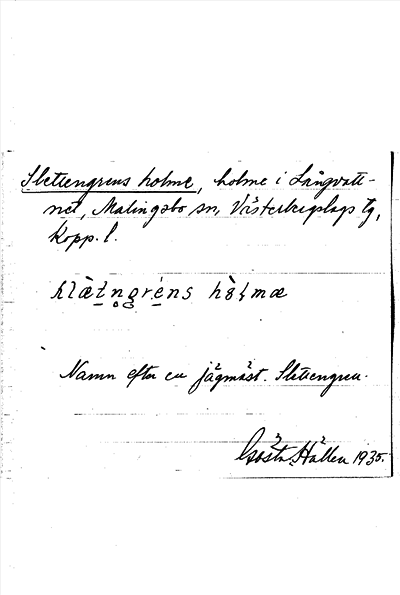 Slettengrens holme, holme i Långvatt-
net, Malingsbo sn, Västerbergslags tg,
Kopp. l.
slæ̀tn̥gréns hòɫmæ
Namn efter en jägmäst. Slettengren.
Gösta Hallen 1935.